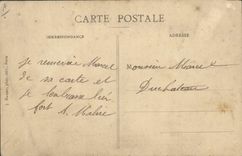 CARTE POSTALE
CORRESPONDANCE
ADRESSE
je remercie Marcel
de sa carte et
je l'embrasse bien
fort
Monsieur Marcel
Duchateau